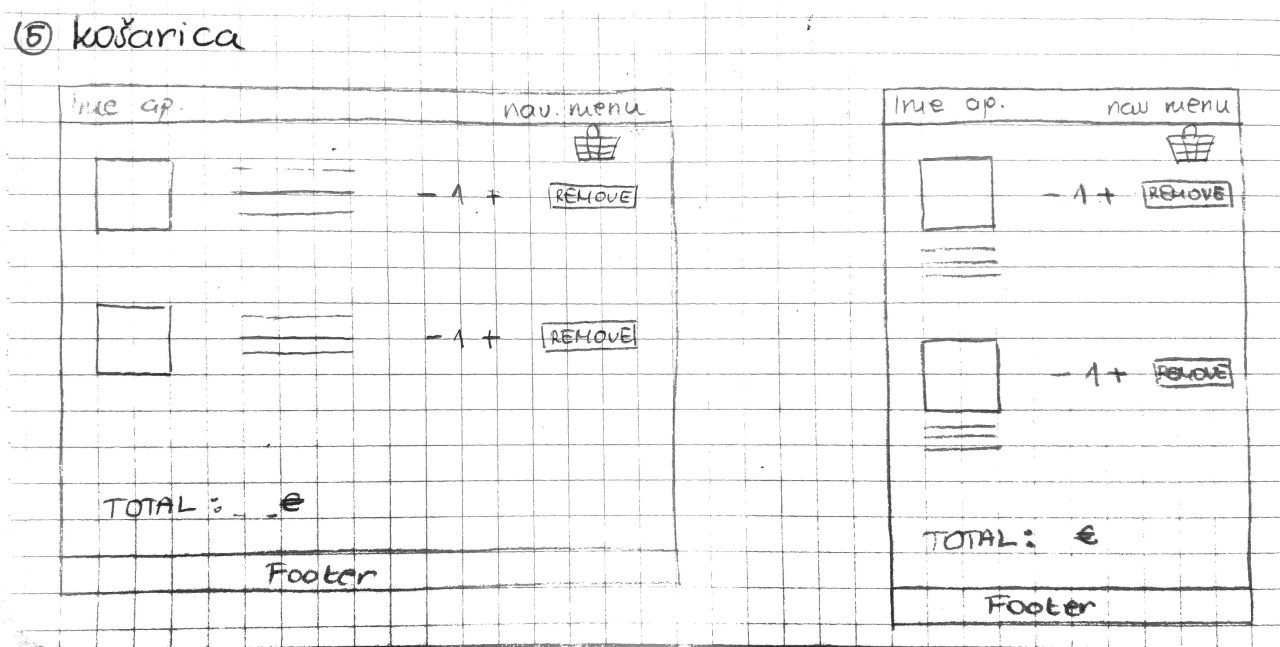 ⑤ košarica
Ime ap. nav. menu
- 1 + REMOVE
- 1 + REMOVE
TOTAL: _ _ €
Footer
Ime ap. nav menu
- 1 + REMOVE
- 1 + REMOVE
TOTAL: €
Footer